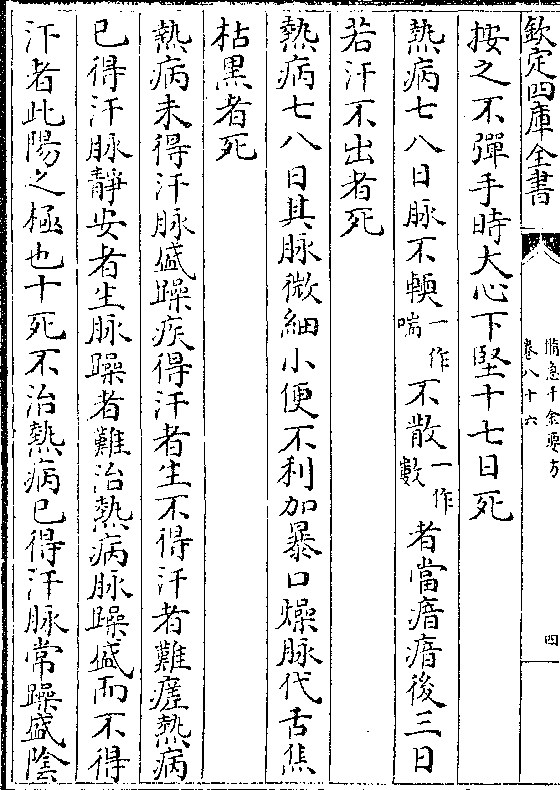 欽定四庫全書
備急千金要方
卷八十六
四
按之不彈手時大心下堅十七日死
熱病七八日脉不輭一作喘不散一作數者當瘖瘖後三日
若汗不出者死
熱病七八日其脉微細小便不利加暴口燥脉代舌焦
枯黑者死
熱病未得汗脉盛躁疾得汗者生不得汗者難瘥熱病
已得汗脉靜安者生脉躁者難治熱病脉躁盛而不得
汗者此陽之極也十死不治熱病已得汗脉常躁盛陰